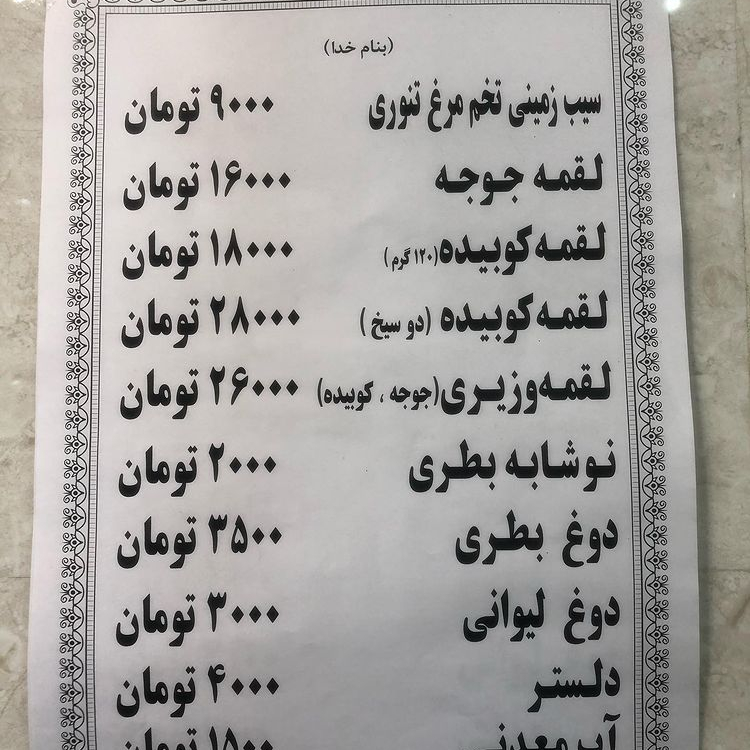 (بنام خدا)
سیب زمینی تخم مرغ تنوری ۹۰۰۰ تومان
لقمه جوجه ۱۶۰۰۰ تومان
لقمه کوبیده (۱۲۰ گرم) ۱۸۰۰۰ تومان
لقمه کوبیده (دو سیخ) ۲۸۰۰۰ تومان
لقمه وزیری (جوجه ، کوبیده) ۲۶۰۰۰ تومان
نوشابه بطری ۲۰۰۰ تومان
دوغ بطری ۳۵۰۰ تومان
دوغ لیوانی ۳۰۰۰ تومان
دلستر ۴۰۰۰ تومان
آب معدنی ۱۵۰۰ تومان